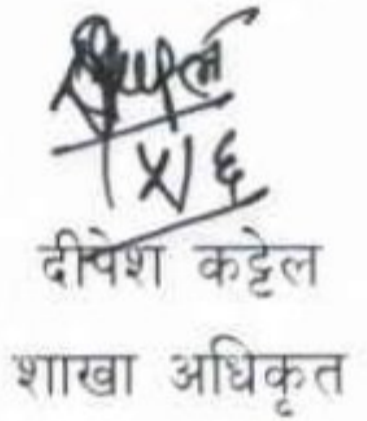 ५/६
दीपेश कट्टेल
शाखा अधिकृत